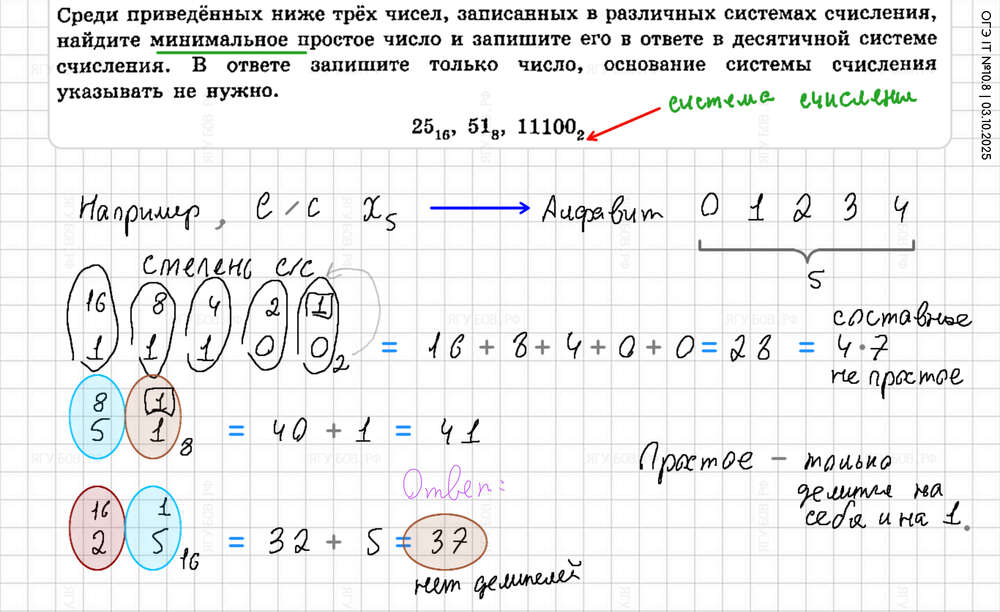 Среди приведённых ниже трёх чисел, записанных в различных системах счисления,
найдите минимальное простое число и запишите его в ответе в десятичной системе
счисления. В ответе запишите только число, основание системы счисления
указывать не нужно.
25₁₆, 51₈, 11100₂
система счисления
ОГЭ IT №10.8 | 03.10.2025
Например, С/С X₅ Алфавит 0 1 2 3 4
5
степень с/с
16 8 4 2 1
1 1 1 0 0₂ = 16 + 8 + 4 + 0 + 0 = 28 = 4·7
составное
не простое
8 1
5 1₈ = 40 + 1 = 41
Простое – только
делится на
себя и на 1.
Ответ:
16 1
2 5₁₆ = 32 + 5 = 37
нет делителей